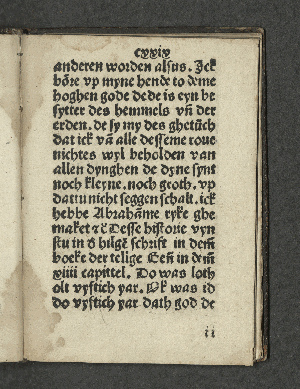 cxxix
anderen worden alsus. Ick
böre vp myne hende to deme
hoghen gode de de is eyn be
sytter des hemmels vn̄ der
erden. de sy my des ghetüch
dat ick vā alle desseme roue
nichtes wyl beholden van
allen dynghen de dyne synt
noch kleyne. noch groth. vp
dattu nicht seggen schalt. ick
hebbe Abrahāme ryke ghe
maket ⁊c̄ Desse historie vyn
stu in d̕ hilgē schrift in dem̄
boeke der telige Gen̄ in dem̄
xiiij capittel. Do was loth
olt vyftich yar. Ok was id
do vyftich yar dath god de
ii